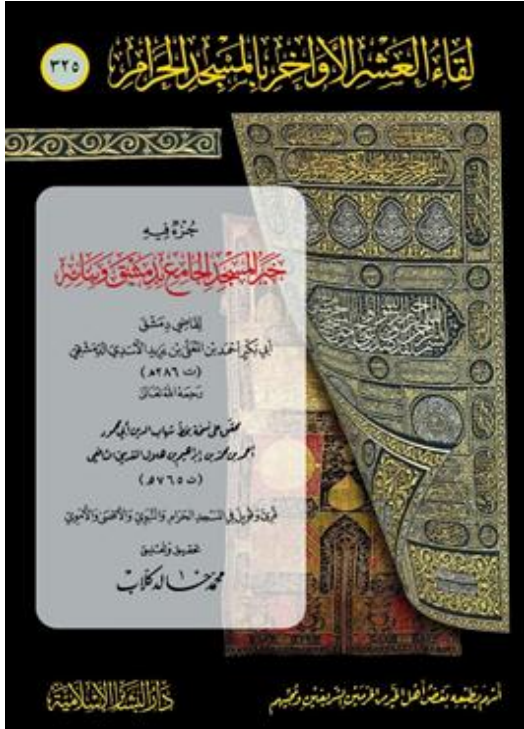 لقاء العشر الأواخر بالمسجد الحرام
٣٢٥
جزء فيه
خبر المسجد الجامع بدمشق وبنائه
لقاضي دمشق
أبي بكر أحمد بن المعلى بن يزيد الأسدي الدمشقي
(ت ٢٨٦ه)
رحمه الله تعالى
محقق على نسخة بخط شهاب الدين أبي محمود
أحمد بن محمد بن إبراهيم بن هلال المقدسي الشافعي
(ت ٧٦٥ه)
قرئ وقوبل في المسجد الحرام والنبوي والأقصى والأموي
تحقيق وتعليق
محمد خالد كلاب
أسهم بطبعه بعض أهل الخير من الحرمين الشريفين ومحبيهم
دار البشائر الإسلامية